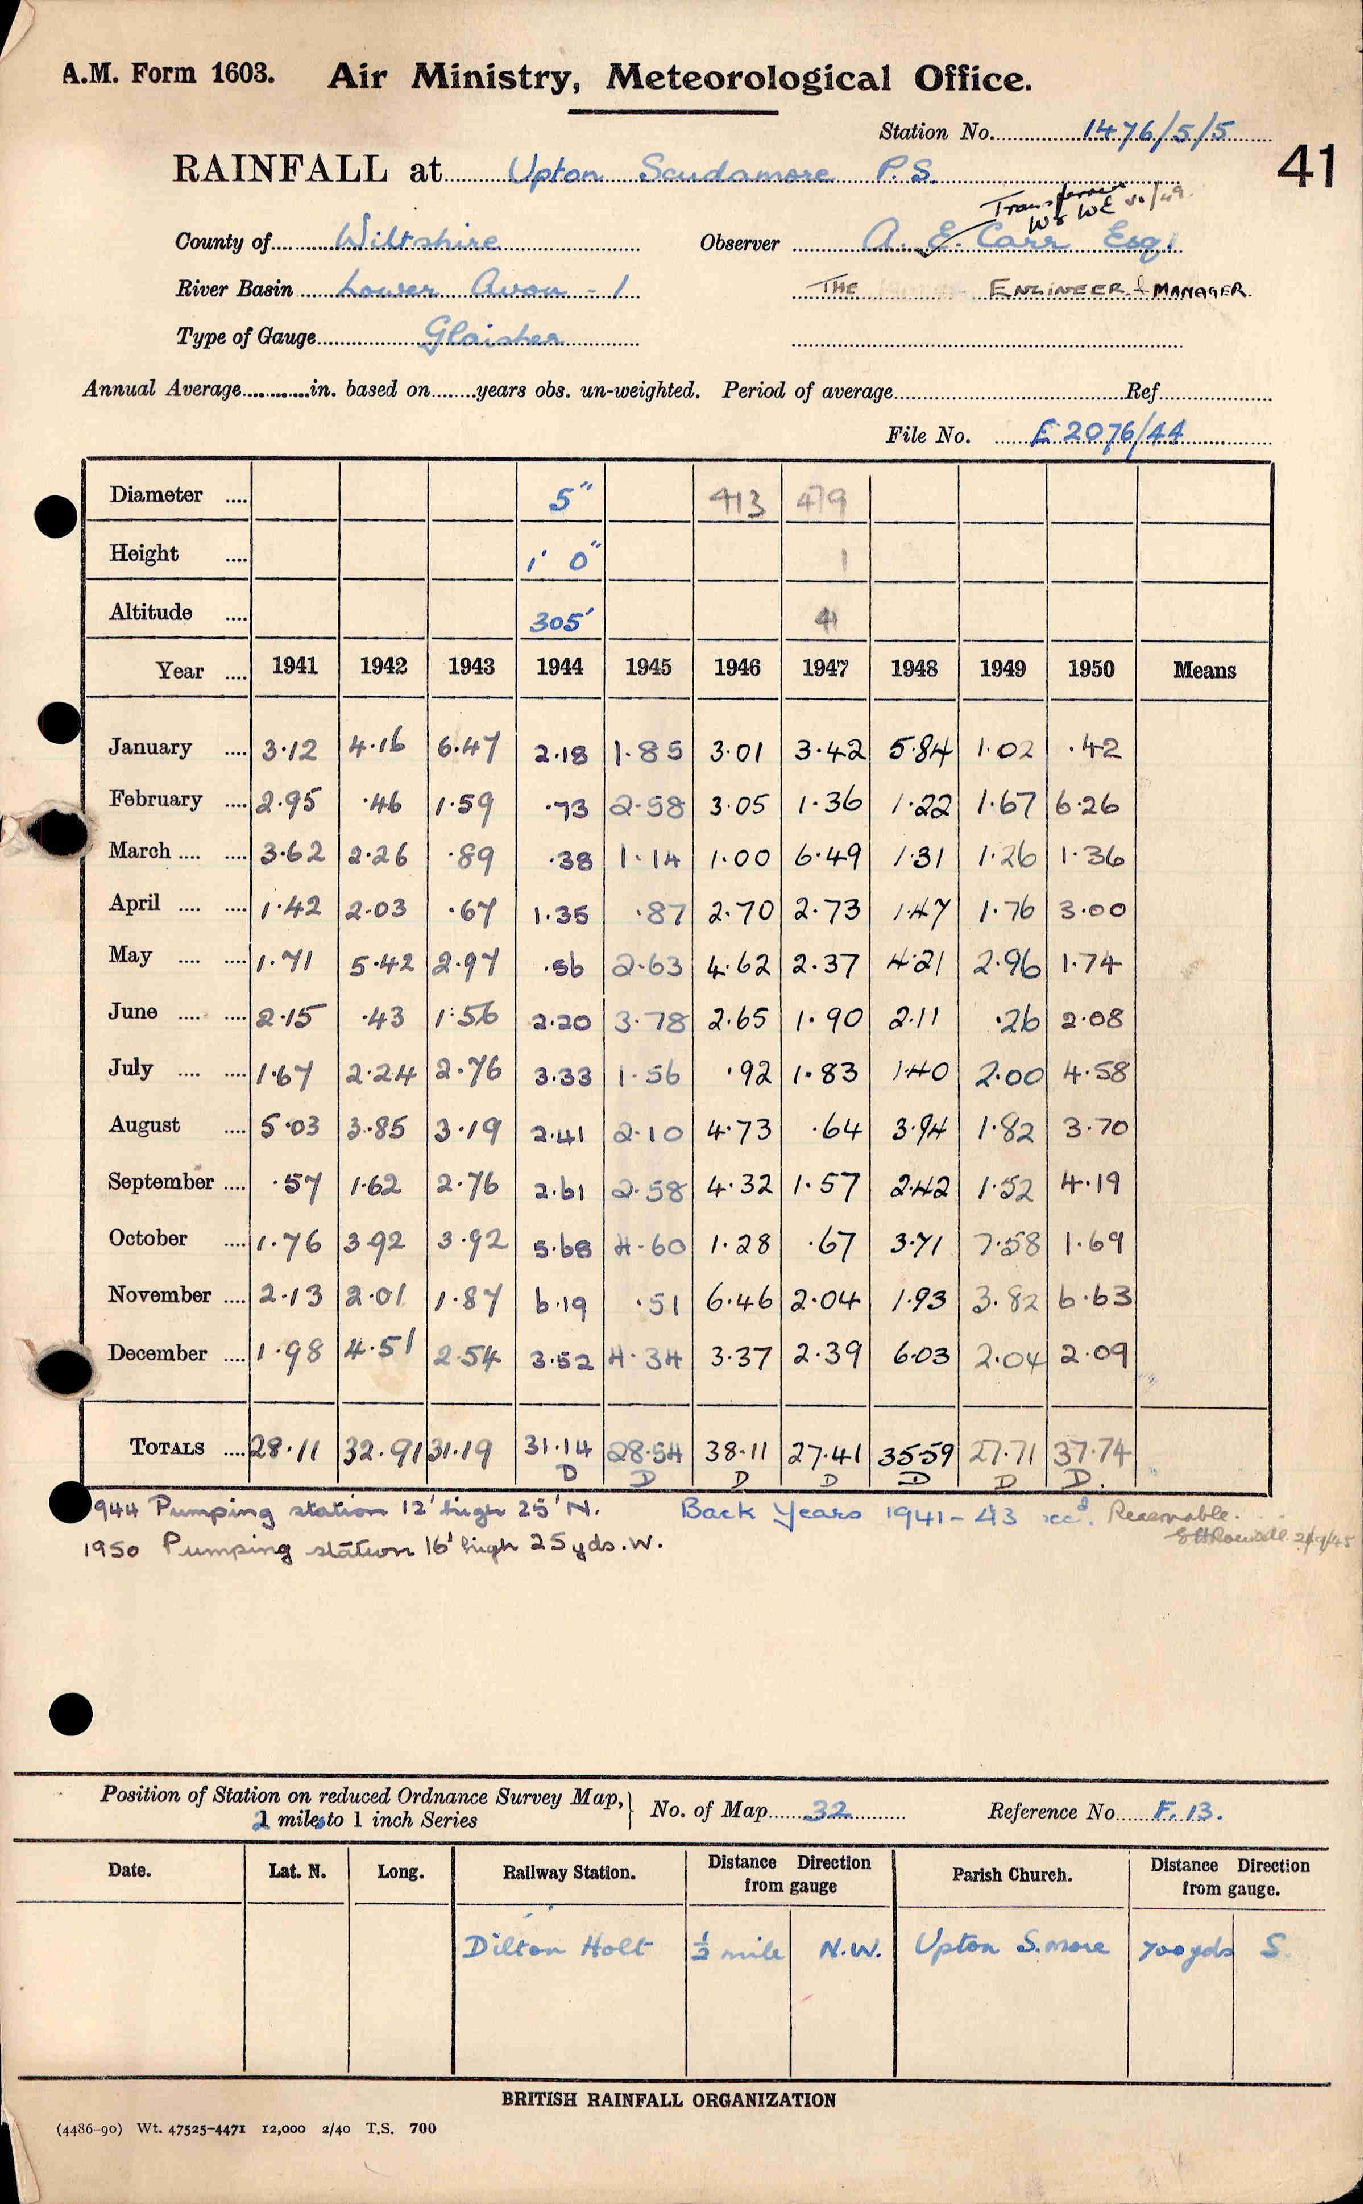 A.M. Form 1603. Air Ministry, Meteorological Office.
Station No. 1476/5/5
41
RAINFALL at Upton Scudamore P.S.
Transferred
WS WE
County of Wiltshire Observer A. E. Carr Esq.
River Basin Lower Avon - 1 THE ENGINEER & MANAGER
Type of Gauge Glaisher
Annual Average............in. based on........years obs. un-weighted. Period of average........ Ref........
File No. E 2076/44
Diameter .... 5" 413 479
Height .... 1' 0" 1
Altitude .... 305' 41
Year .... 1941 1942 1943 1944 1945 1946 1947 1948 1949 1950 Means
January .... 3.12 4.16 6.47 2.18 1.85 3.01 3.42 5.84 1.02 .42
February .... 2.95 .46 1.59 .73 2.58 3.05 1.36 1.22 1.67 6.26
March .... .... 3.62 2.26 .89 .38 1.14 1.00 6.49 1.31 1.26 1.36
April .... .... 1.42 2.03 .67 1.35 .87 2.70 2.73 1.47 1.76 3.00
May .... .... 1.71 5.42 2.97 .56 2.63 4.62 2.37 4.21 2.96 1.74
June .... .... 2.15 .43 1.56 2.20 3.78 2.65 1.90 2.11 .26 2.08
July .... .... 1.67 2.24 2.76 3.33 1.56 .92 1.83 1.40 2.00 4.58
August .... 5.03 3.85 3.19 2.41 2.10 4.73 .64 3.94 1.82 3.70
September .... .57 1.62 2.76 2.61 2.58 4.32 1.57 2.42 1.52 4.19
October .... 1.76 3.92 3.92 5.68 4.60 1.28 .67 3.71 7.58 1.69
November .... 2.13 2.01 1.87 6.19 .51 6.46 2.04 1.93 3.82 6.63
December .... 1.98 4.51 2.54 3.52 4.34 3.37 2.39 6.03 2.04 2.09
TOTALS .... 28.11 32.91 31.19 31.14 28.54 38.11 27.41 35.59 27.71 37.74
D D D D D D D.
944 Pumping station 12' high 25' N. Back Years 1941-43 recd. Reasonable.
1950 Pumping station 16' high 25 yds. W.
Position of Station on reduced Ordnance Survey Map, No. of Map 32 Reference No. F. 13.
2 miles to 1 inch Series
Date. Lat. N. Long. Railway Station. Distance Direction from gauge Parish Church. Distance Direction from gauge.
Dilton Holt ½ mile N.W. Upton S.more 700 yds S.
BRITISH RAINFALL ORGANIZATION
(4486-90) Wt. 47525-4471 12,000 2/40 T.S. 700